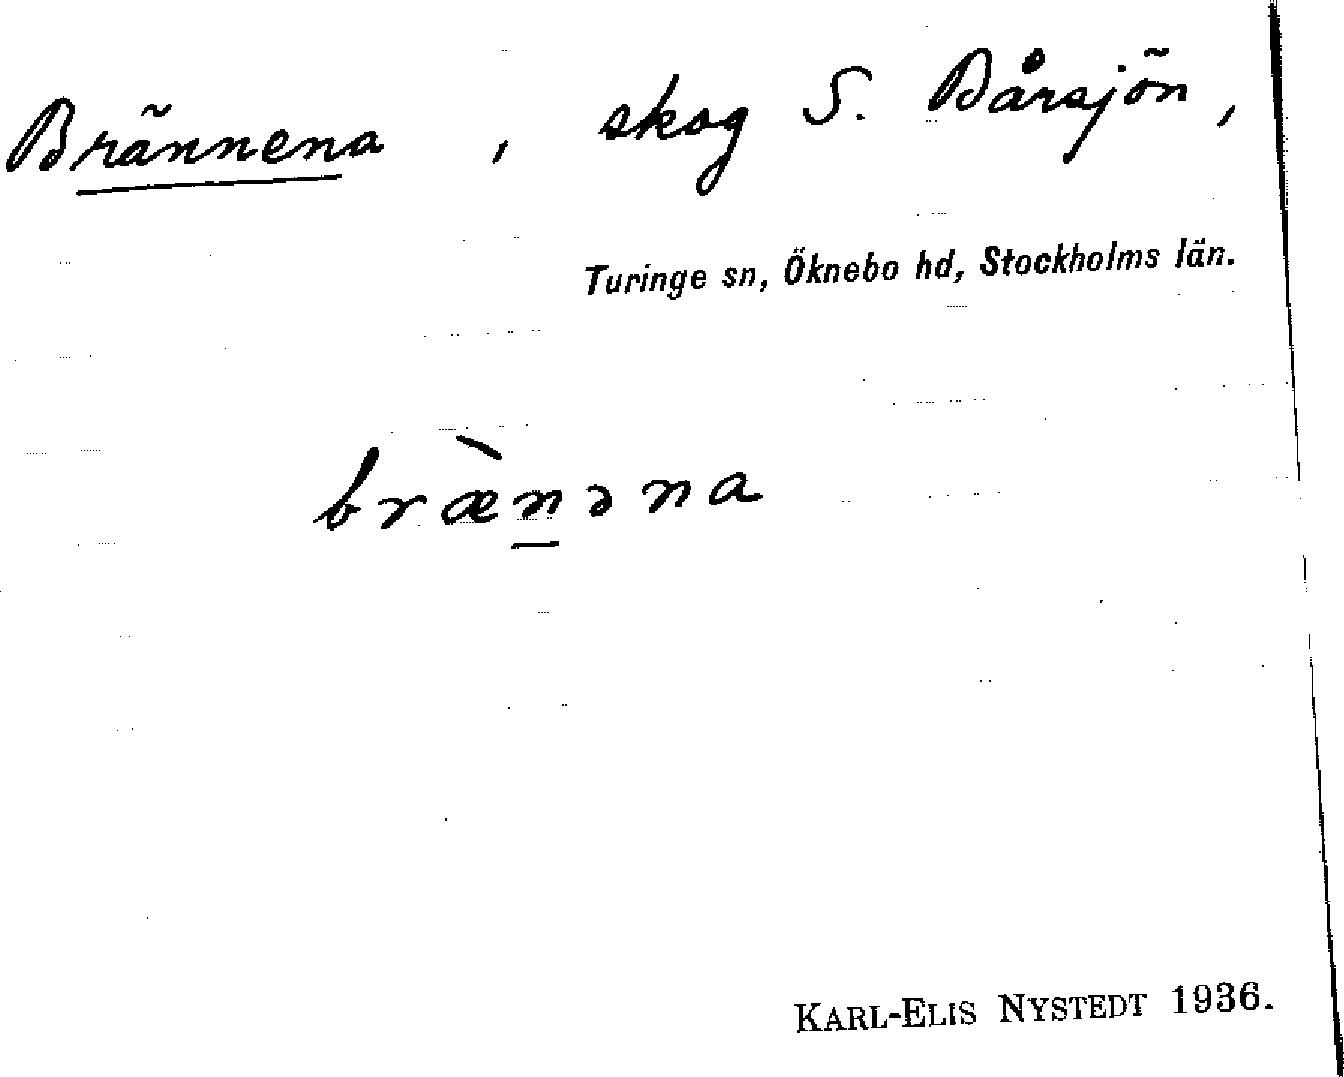 Brännena, skog S. Bårsjön,
Turinge sn, Öknebo hd, Stockholms län.
bræ̀n̲əna
KARL-ELIS NYSTEDT 1936.